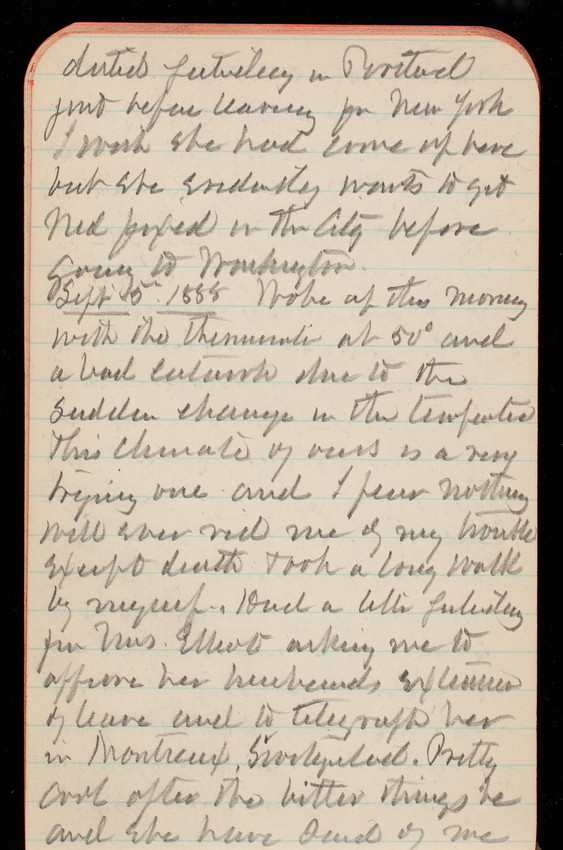 dated yesterday in Portland
just before leaving for New York
I wish she had come up here
but she evidently wants to get
Ned fixed in the City before
going to Washington
Sept 5th 1888 Woke up this morning
with the thermometer at 50° and
a bad catarrh due to the
sudden change in the temperature
This climate of ours is a very
trying one and I fear nothing
will ever rid me of my trouble
except death Took a long walk
by myself. Had a letter yesterday
from Mrs. Elliott asking me to
approve her husbands extension
of leave and to telegraph her
in Montreux, Switzerland. Pretty
cool after the bitter things he
and she have said of me